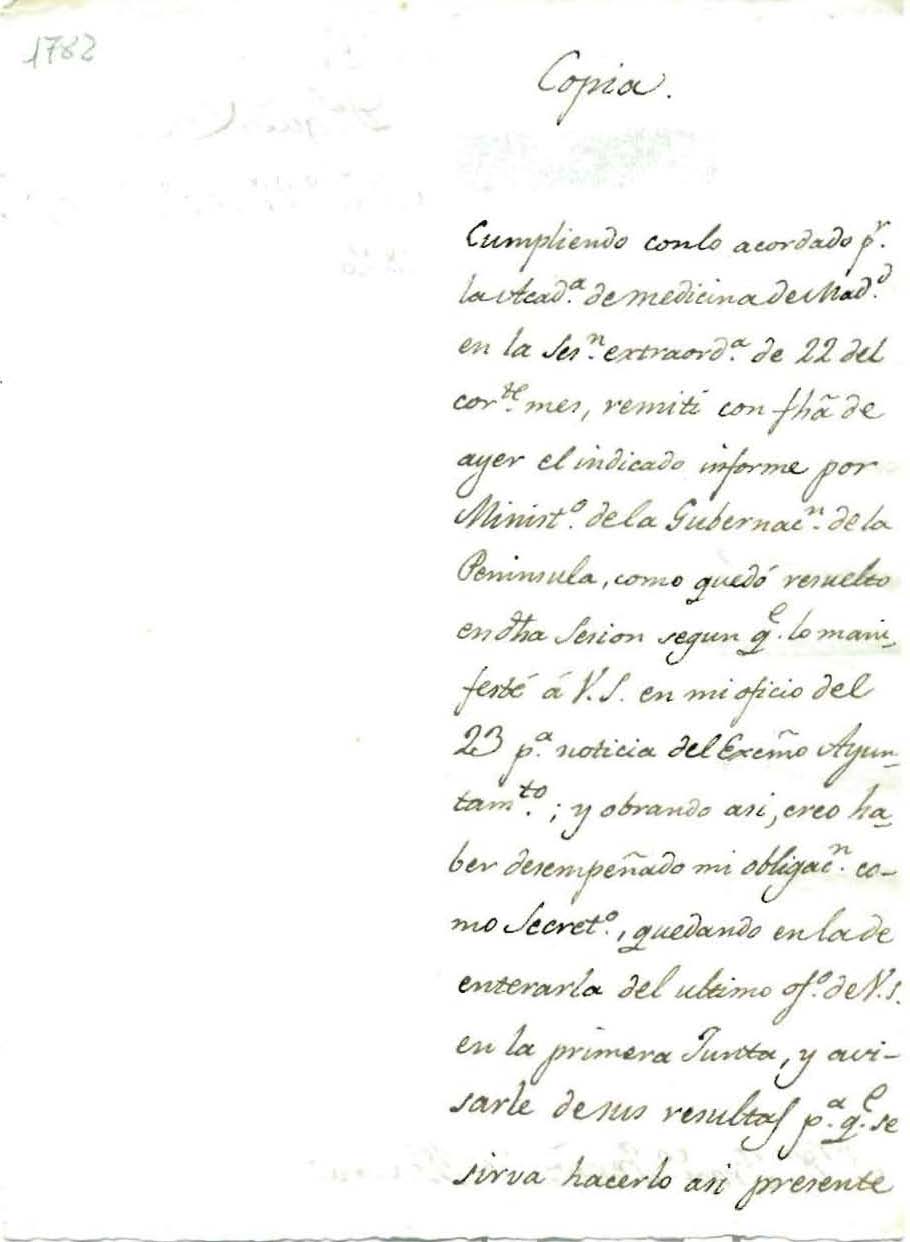 1782
Copia.
Cumpliendo conlo acordado p.r
la Acad.a de medicina de Mad.d
en la Ses.n extraord.a de 22 del
cor.te mes, remití con fhã de
ayer el indicado informe por
Minist.o de la Gubernac.n de la
Peninsula, como quedó resuelto
en dha Sesion segun q.e lo mani-
festé á V.S. en mi oficio del
23 p.a noticia del Excm̃o Ayun-
tam.to; y obrando asi, creo ha-
ber desempeñado mi obligac.n co-
mo Secret.o, quedando en la de
enterarla del ultimo of.o de V.S.
en la primera Junta, y avi-
sarle de sus resultas p.a q.e se
sirva hacerlo asi presente